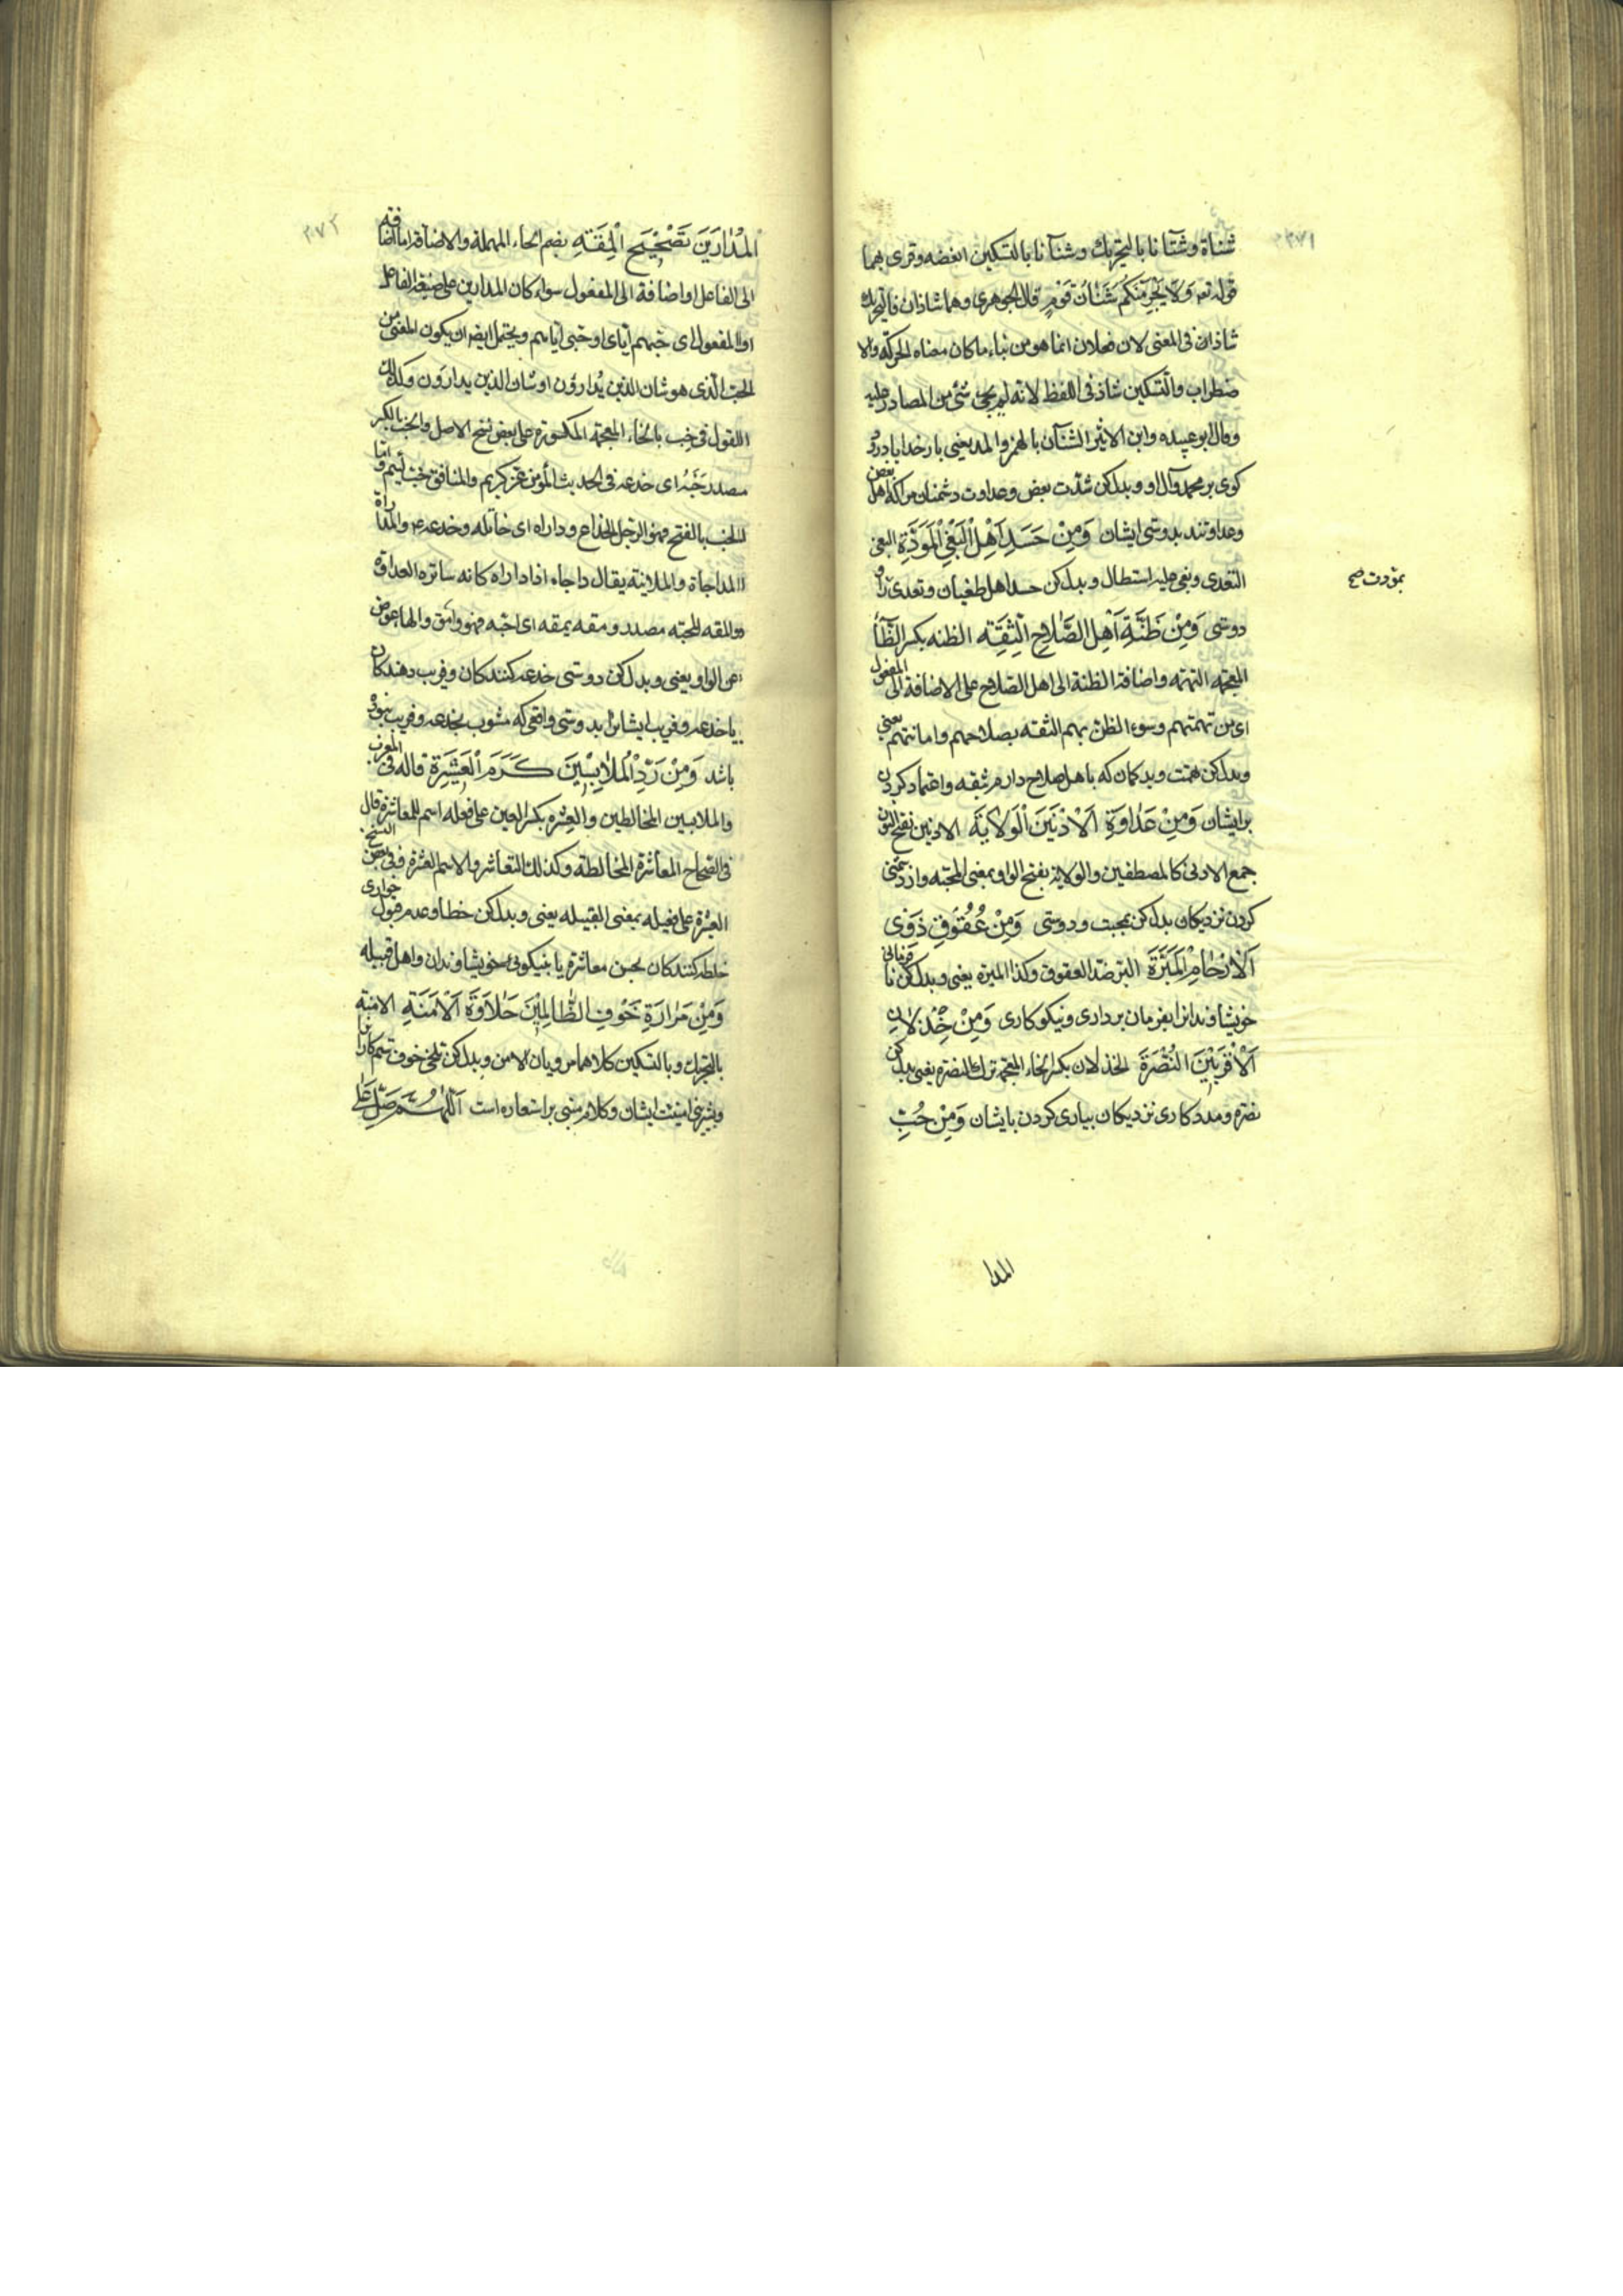 ٢٧١
شناة وشنآنا بالتحريك وشنآنا بالتسكين ابغضه وقرى بهما
قوله تعه وَلَا يَجْرِمَنَّكُمْ شَنَاٰنُ قَوْمٍ قال الجوهرى وهما شاذان فالتحريك
شاذ فى المعنى لان فعلان انما هو من بناء ما كان معناه الحركة والا
ضطراب والتسكين شاذ فى اللفظ لانه لم يجئ شئ من المصادر عليه
وقال ابو عبيده وابن الاثير الشنآن بالهمز والمد يعنى بار خدايا درود
كوى بر محمد وآل او وبدل كن شدّت بعض وعداوت دشمنان مرا كه اهل بغض
وعداوتند بدوستى ايشان وَمِنْ حَسَدِ اَهْلِ الْبَغْيِ الْمَوَدَّةِ البغى
التعدى وبغى عليه استطال وبدل كن حسد اهل طغيان وتعدى را و
بمودت صح
دوستى وَمِنْ ظَنَّةِ اَهْلِ الصَّلَاحِ الثِّقَةِ الظنه بكسر الظاء
المعجمه التهمه واضافة الظنة الى اهل الصلاح على الاضافة الى المفعول
اى من تهمتهم وسوء الظن بهم الثقه بصلاحهم وامانتهم يعنى
وبدل كن تهمت وبدكمان كه باهل صلاح دارم بثقه واعتماد كردن
بر ايشان وَمِنْ عَدَاوَةِ الْاَدْنَيْنَ الْوَلَايَةَ الادنين بفتح النون
جمع الادنى كالمصطفين والولاية بفتح الواو بمعنى المحبته واز دشمنى
كردن نزديكان بدل كن بمحبت ودوستى وَمِنْ عُقُوقِ ذَوِى
الْاَرْحَامِ الْمَبَرَّةَ البر ضد العقوق وكذا المبرة يعنى وبدل كن نا فرمانى
خويشاوندانرا بفرمان بردارى ونيكوكارى وَمِنْ خِذْلَانِ
الْاَقْرَبِيْنَ النُّصْرَةَ الخذلان بكسر الخاء المعجمه ترك النصرة يعنى بدل كن
نصرة ومددكارى نزديكان بيارى كردن با ايشان وَمِنْ حُبِّ
المدا
٢٧٢
الْمُدَارِيْنَ تَصْحِيْحَ الْمِقَةِ بضم الحاء المهملة والاضافة اما اضافة
الى الفاعل او اضافة الى المفعول سواء كان المدارين على صيغة الفاعل
او المفعول اى حبهم اياى او حبى اياهم ويحتمل ايضا ان يكون المعنى من
الحب الذى هو شان الذين يُدارؤن او شان الذين يدارَون وكذلك
القول فى خِب بالخاء المعجمة المكسورة على بعض نسخ الاصل والخب بالكسر
مصدر خَبَّهُ اى خدعه فى الحديث المؤمن غر كريم والمنافق خب لئيم واما
الخب بالفتح فهو الرجل الخداع وداراه اى خاتله وخدعه والمداراة
المداجاة والملاينة يقال داجاه اذا داراه كانه ساتره العداوة
والمقه المحبته مصدر ومقه يمقه اى احبه فهو وامق والهاء عوض
عن الواو يعنى وبدل كن دوستى خدعه كنندكان وفريب دهندكان
يا خدعه وفريب ايشانرا بدوستى واقعى كه مشوب بخدعه وفريب نبوده
باشد وَمِنْ رَدِّ الْمُلَابِسِيْنَ كَرَمَ الْعِشْرَةِ قاله فى المغرب
والملابسين المخالطين والعِشرة بكسر العين على فعله اسم للمعاشرة قال
فى الصحاح المعاشرة المخالطة وكذلك التعاشر والاسم العشرة وفى بعض النسخ
العشرة على فعيله بمعنى القبيله يعنى وبدل كن خطا وعدم قبول
خلطه كنندكان بحسن معاشرة يا بنيكويى خويشاوندان واهل قبيله
وَمِنْ مَرَارَةِ خَوْفِ الظَّالِمِيْنَ حَلَاوَةَ الْاَمَنَةِ الامنة
بالتحريك وبالتسكين كلاهما مرويان الامن وبدل كن تلخى خوف ستمكاران
وبشيرينى امنيت ايشان وكلام مبنى بر استعاره است اَللّٰهُمَّ صَلِّ عَلٰى